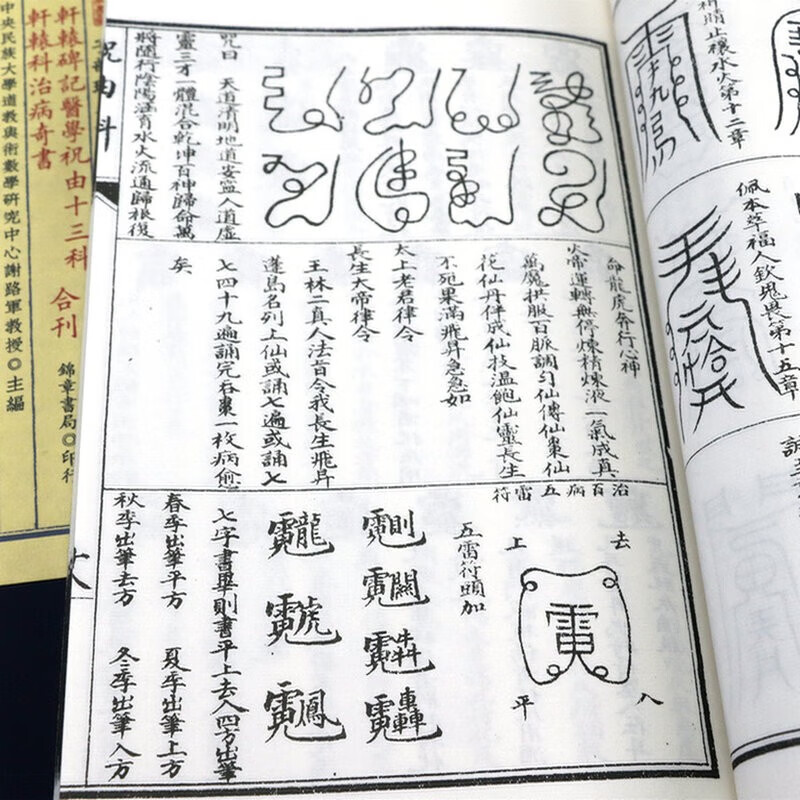 軒轅碑記醫學祝由十三科 合刊
軒轅科治病奇書
中央民族大學道教與術數學研究中心謝路軍教授◎主編
錦章書局◎印行
祝由科
咒曰 天道清明地道安寧人道虛
靈三才一體混合乾坤百神歸命萬
將隨行陰陽洒育水火流通歸根復
命龍虎奔行心神
火帝運轉無停煉精煉液一氣成真
萬魔拱服百脈調勻仙傳仙棗仙
花仙丹伴成仙技溫飽仙靈長生
不死果滿飛昇急急如
太上老君律令
長生大帝律令
王林二真人法旨令我長生飛昇
蓬島名列上仙或誦七遍或誦七
七四十九遍誦完吞棗一枚病愈
矣
治百病五雷符
去
上
平
入
五雷符頭加
七字書畢則書平上去入四方出筆
春季出筆平方 夏季出筆上方
秋季出筆去方 冬季出筆入方
祈晴止穰水火第十二章
佩本草福人欽鬼畏第十五章